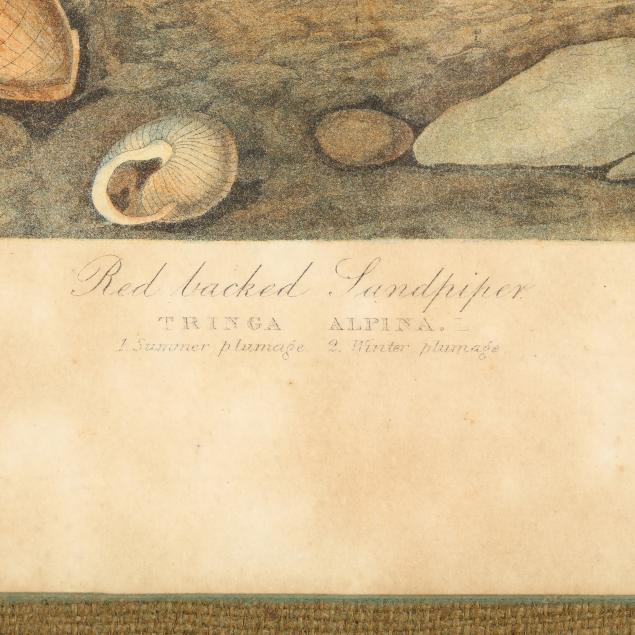 Red backed Sandpiper
TRINGA ALPINA.
1. Summer plumage. 2. Winter plumage